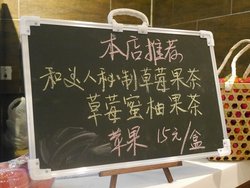 本店推荐
和美人秘制草莓果茶
草莓蜜柚果茶
苹果 15元/盒